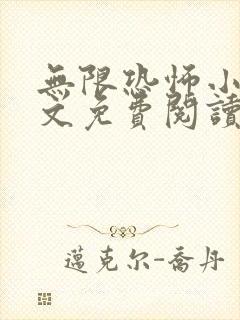 無限恐怖小
文免費閱讀
邁克尔-喬丹